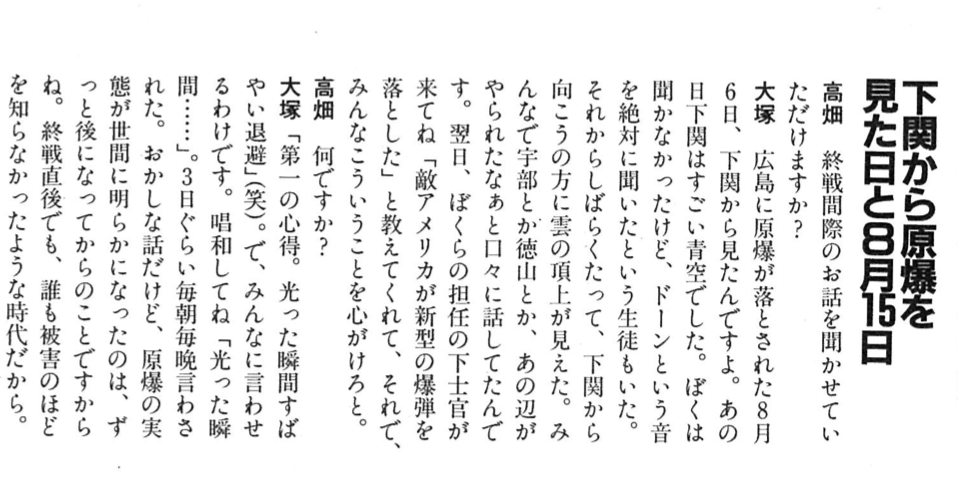 下関から原爆を
見た日と8月15日
高畑　終戦間際のお話を聞かせてい
ただけますか？
大塚　広島に原爆が落とされた8月
6日、下関から見たんですよ。あの
日下関はすごい青空でした。ぼくは
聞かなかったけど、ドーンという音
を絶対に聞いたという生徒もいた。
それからしばらくたって、下関から
向こうの方に雲の頂上が見えた。み
んなで宇部とか徳山とか、あの辺が
やられたなぁと口々に話してたんで
す。翌日、ぼくらの担任の下士官が
来てね「敵アメリカが新型の爆弾を
落とした」と教えてくれて、それで、
みんなこういうことを心がけろと。
高畑　何ですか？
大塚　「第一の心得。光った瞬間すば
やい退避」（笑）。で、みんなに言わせ
るわけです。唱和してね「光った瞬
間……」。3日ぐらい毎朝毎晩言わさ
れた。おかしな話だけど、原爆の実
態が世間に明らかになったのは、ず
っと後になってからのことですから
ね。終戦直後でも、誰も被害のほど
を知らなかったような時代だから。